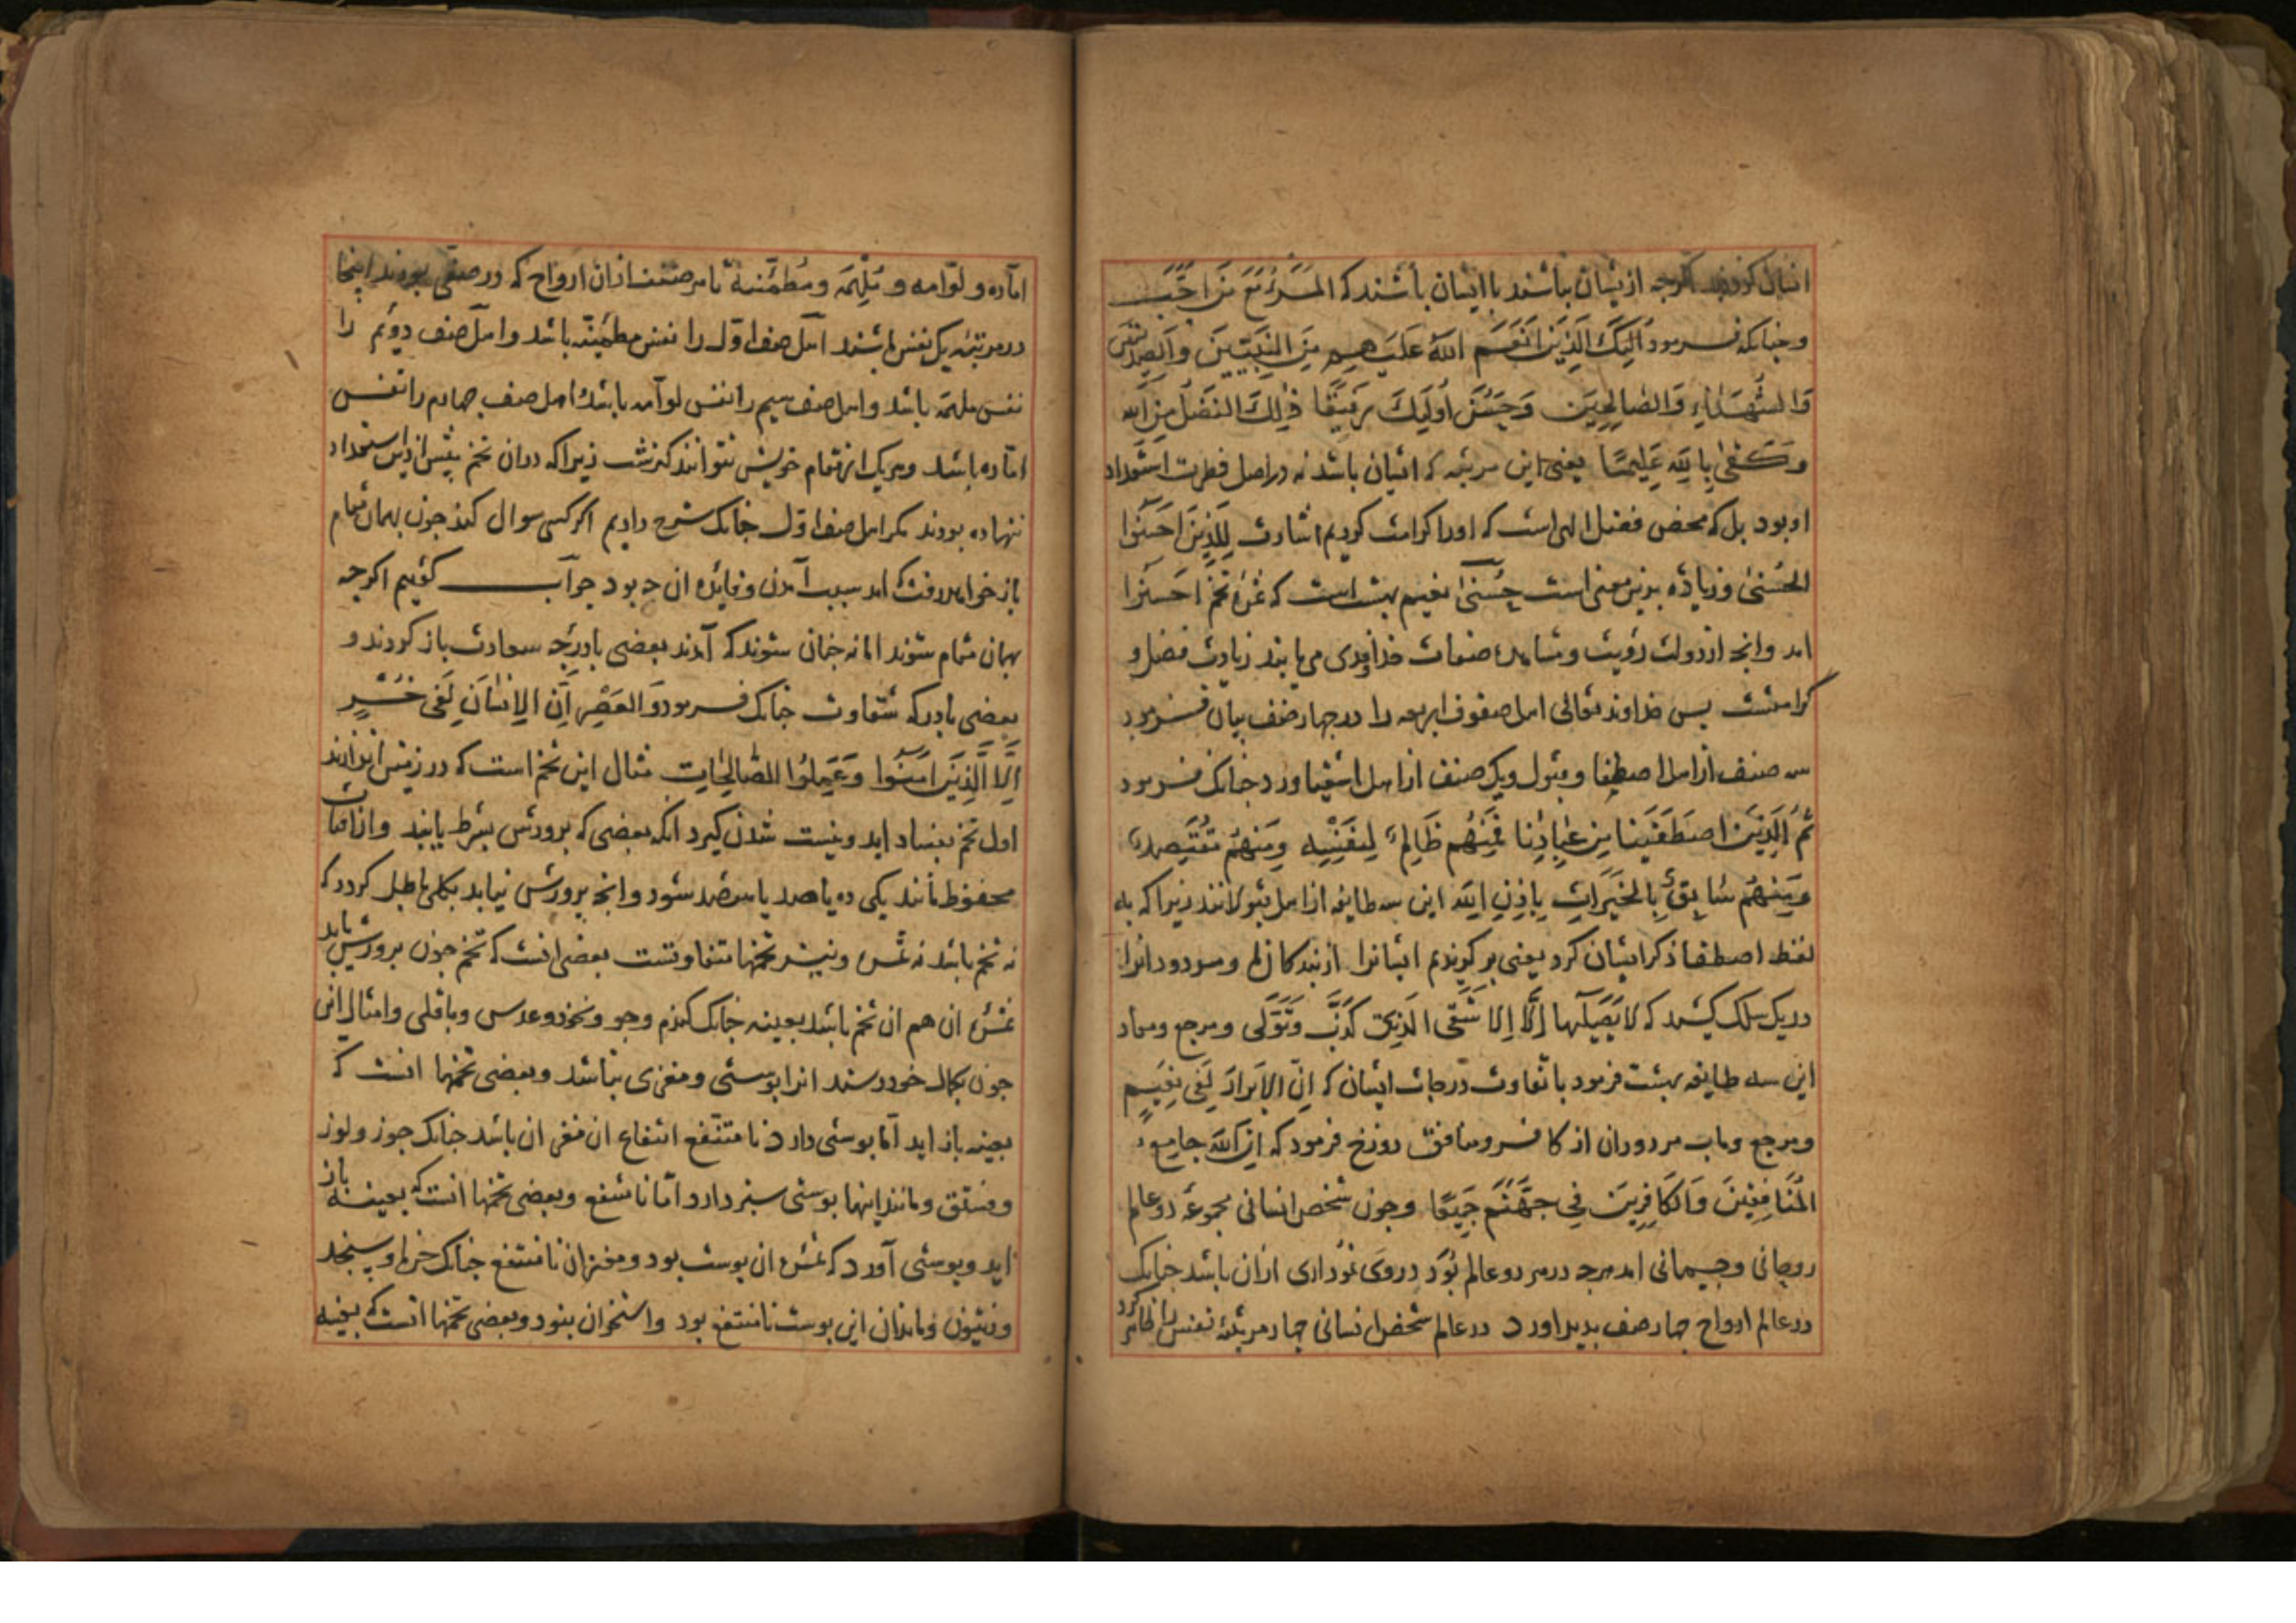 اقبال کردند اگرچه ازیشان نباشند با ایشان باشند که المَرءُ مَعَ مَن اَحَبَّ
و چنانکه فرمود اُلئِکَ الَّذینَ اَنعَمَ اللهُ عَلَیهِم مِنَ النَّبِیّینَ وَالصِّدیقینَ
وَالشُّهَدَاءِ وَالصَّالِحِینَ وَحَسُنَ اُولَئِکَ رَفِیقًا ذٰلِکَ الفَضلُ مِنَ الله
وَکَفٰی بِاللهِ عَلِیمًا یعنی این مرتبه که ایشان باشد نه در اصل فطرت استعداد
او بود بل که محض فضل الهی است که او را کرامت کردیم اشارت لِلَّذِینَ اَحسَنُوا
الحُسنیٰ وزیادَه بدین معنی است حُسنیٰ نعیم بهشت است که ثمرهٔ تخم اَحسَنُوا
اند وانچه از دولت رؤیت و مشاهدهٔ صفات خداوندی می یابند زیادت فضل و
کرامتست پس خداوند تعالی اهل صفوف اربعه را در چهار صنف بیان فرمود
سه صنف از اهل اصطفا و قبول و یک صنف از اهل اشقیا و رد چنانک فرمود
ثُمَّ الَّذِینَ اصطَفَینَا مِن عِبَادِنَا فَمِنهُم ظَالِمٌ لِنَفسِهِ وَمِنهُم مُقتَصِدٌ
وَمِنهُم سَابِقٌ بِالخَیرَاتِ بِاِذنِ اللهِ این سه طایفه از اهل قبولانند زیرا که به
لفظ اصطفا ذکر ایشان کرد یعنی بر گزیدیم ایشانرا از بندکان و مردودانرا
در یک سلک کشید که لا یَصلٰیهَا اِلَّا الاَشقَی الَّذِی کَذَّبَ وَتَوَلّٰی و مرجع و معاد
این سه طایفه بهشت فرمود با تفاوت درجات ایشان که اِنَّ الاَبرَارَ لَفِی نَعِیمٍ
و مرجع و ماب مردودان از کافر و منافق دوزخ فرمود که اِنَّ اللهَ جَامِعُ
المُنَافِقِینَ وَالکَافِرِینَ فِی جَهَنَّمَ جَمِیعًا و چون شخص انسانی مجموعه دو عالم
روحانی و جسمانی امد هرچه در هر دو عالم بُوَد در وی نموداری ازان باشد چنانک
در عالم ارواح چهار صف بدید اورد در عالم شخص انسانی چهار مرتبهٔ نفس را ظاهر کرد
امّاره و لوّامه و مُلهَمه و مُطمئنّه تا هر صنف ازان ارواح که در صفی بودند اینجا
در مرتبهٔ یک نفس باشند اهل صف اوّل را نفس مطمئنّه باشد و اهل صف دوّیم را
نفس ملهمَه باشد و اهل صف سیم را نفس لوّامه باشد و اهل صف چهارم را نفس
امّاره باشد و هر یک از مقام خویش نتوانند گذشت زیرا که دران تخم بیش از این استعداد
ننهاده بودند مکر اهل صف اوّل چنانک شرح دادیم اکر کسی سوال کند چون بهمان مقام
باز خواهد رفت که امد سبب آمدن و فایده ان چه بود جوآب کوئیم اکرچه
بهمان مقام شوند اما نه چنان شوند که آمدند بعضی با درجه سعادت باز کردند و
بعضی با درکه شقاوت چنانک فرمود وَالعَصرِ اِنَّ الاِنسَانَ لَفِی خُسرٍ
اِلَّا الَّذِینَ اٰمَنُوا وَعَمِلُوا الصَّالِحَاتِ مثال این تخم است که در زمین اندازند
اول تخم بفساد اید و نیست شدن کیرد انکه بعضی که برورش بشرط یابند و از افات
محفوظ مانند یکی ده یا صد یا هفصد شود و انچه برورش نیابد بکلی باطل کردد که
نه تخم باشد نه ثمره و نیز تخمها متفاوتست بعضی انست که تخم چون برورش یابد
ثمره ان هم ان تخم باشد بعینه چنانک کندم و جو و نخود و عدس و باقلی و امثال این
چون بکمال خود رسند انرا بوستی و مغزی نباشد و بعضی تخمها انست که
بعینه باز اید امّا بوستی دارد نا منتفع انتفاع ان مغز ان باشد چنانک جوز و لوز
و فستق و مانند اینها بوستی سبز دارد امّا نامنتفع و بعضی تخمها انست که بعینه باز
اید و بوستی آورد که ثمره ان بوست بود و مغز ان نامنتفع چنانک خرما و سنجد
و زیتون و مانند ان این بوست نامنتفع بود و استخوان بنود و بعضی تخمها انست که بعینه